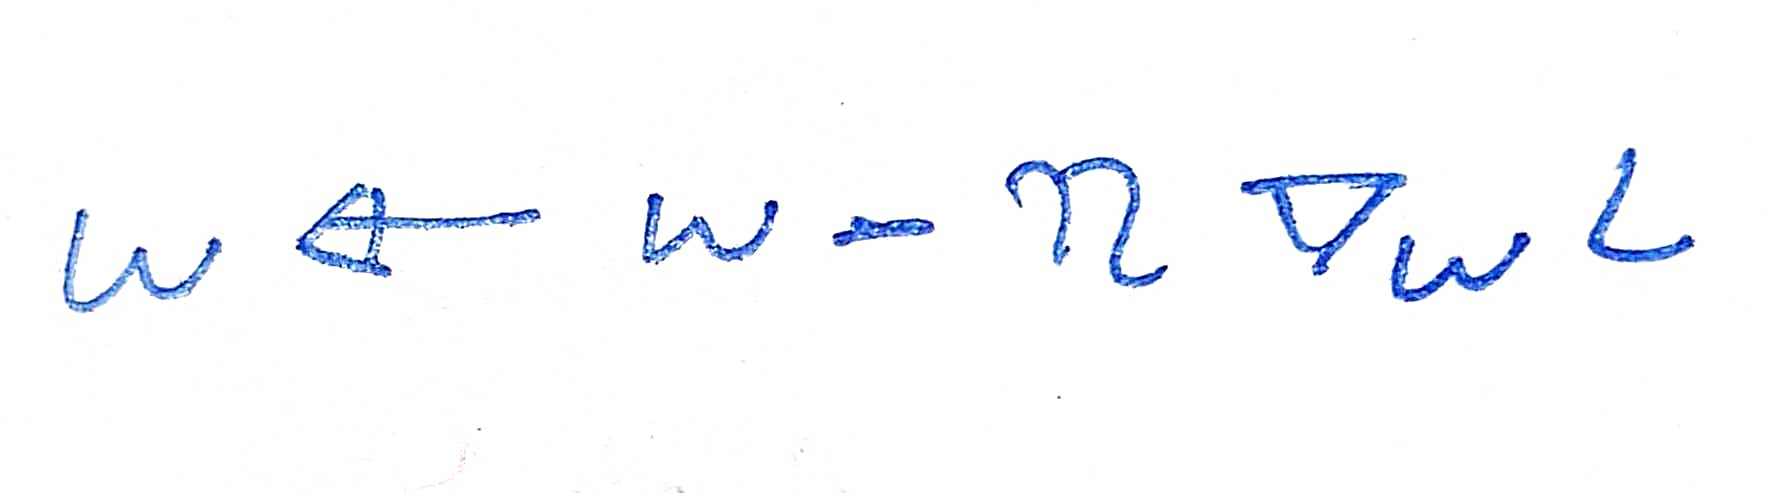 w ← w - η ∇w L